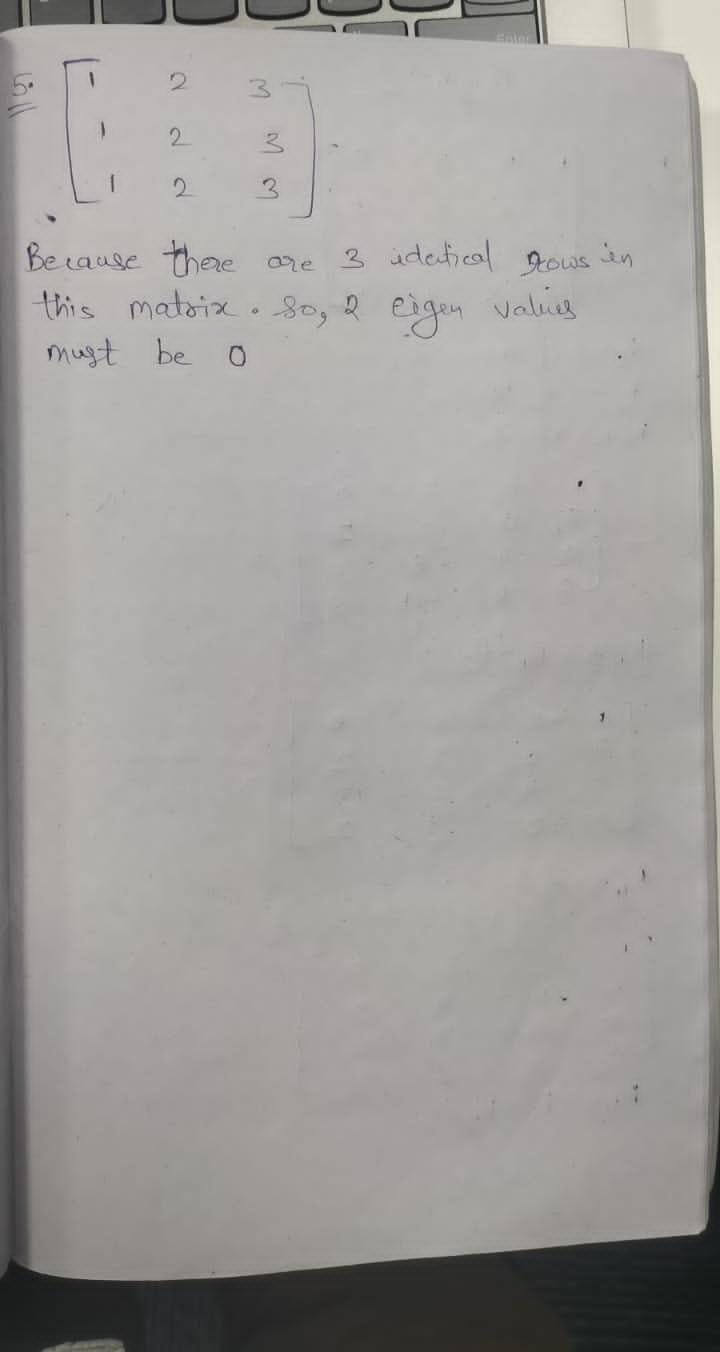 Enter
5. 1 2 3
1 2 3
1 2 3
Because there are 3 identical rows in
this matrix. So, 2 eigen values
must be 0